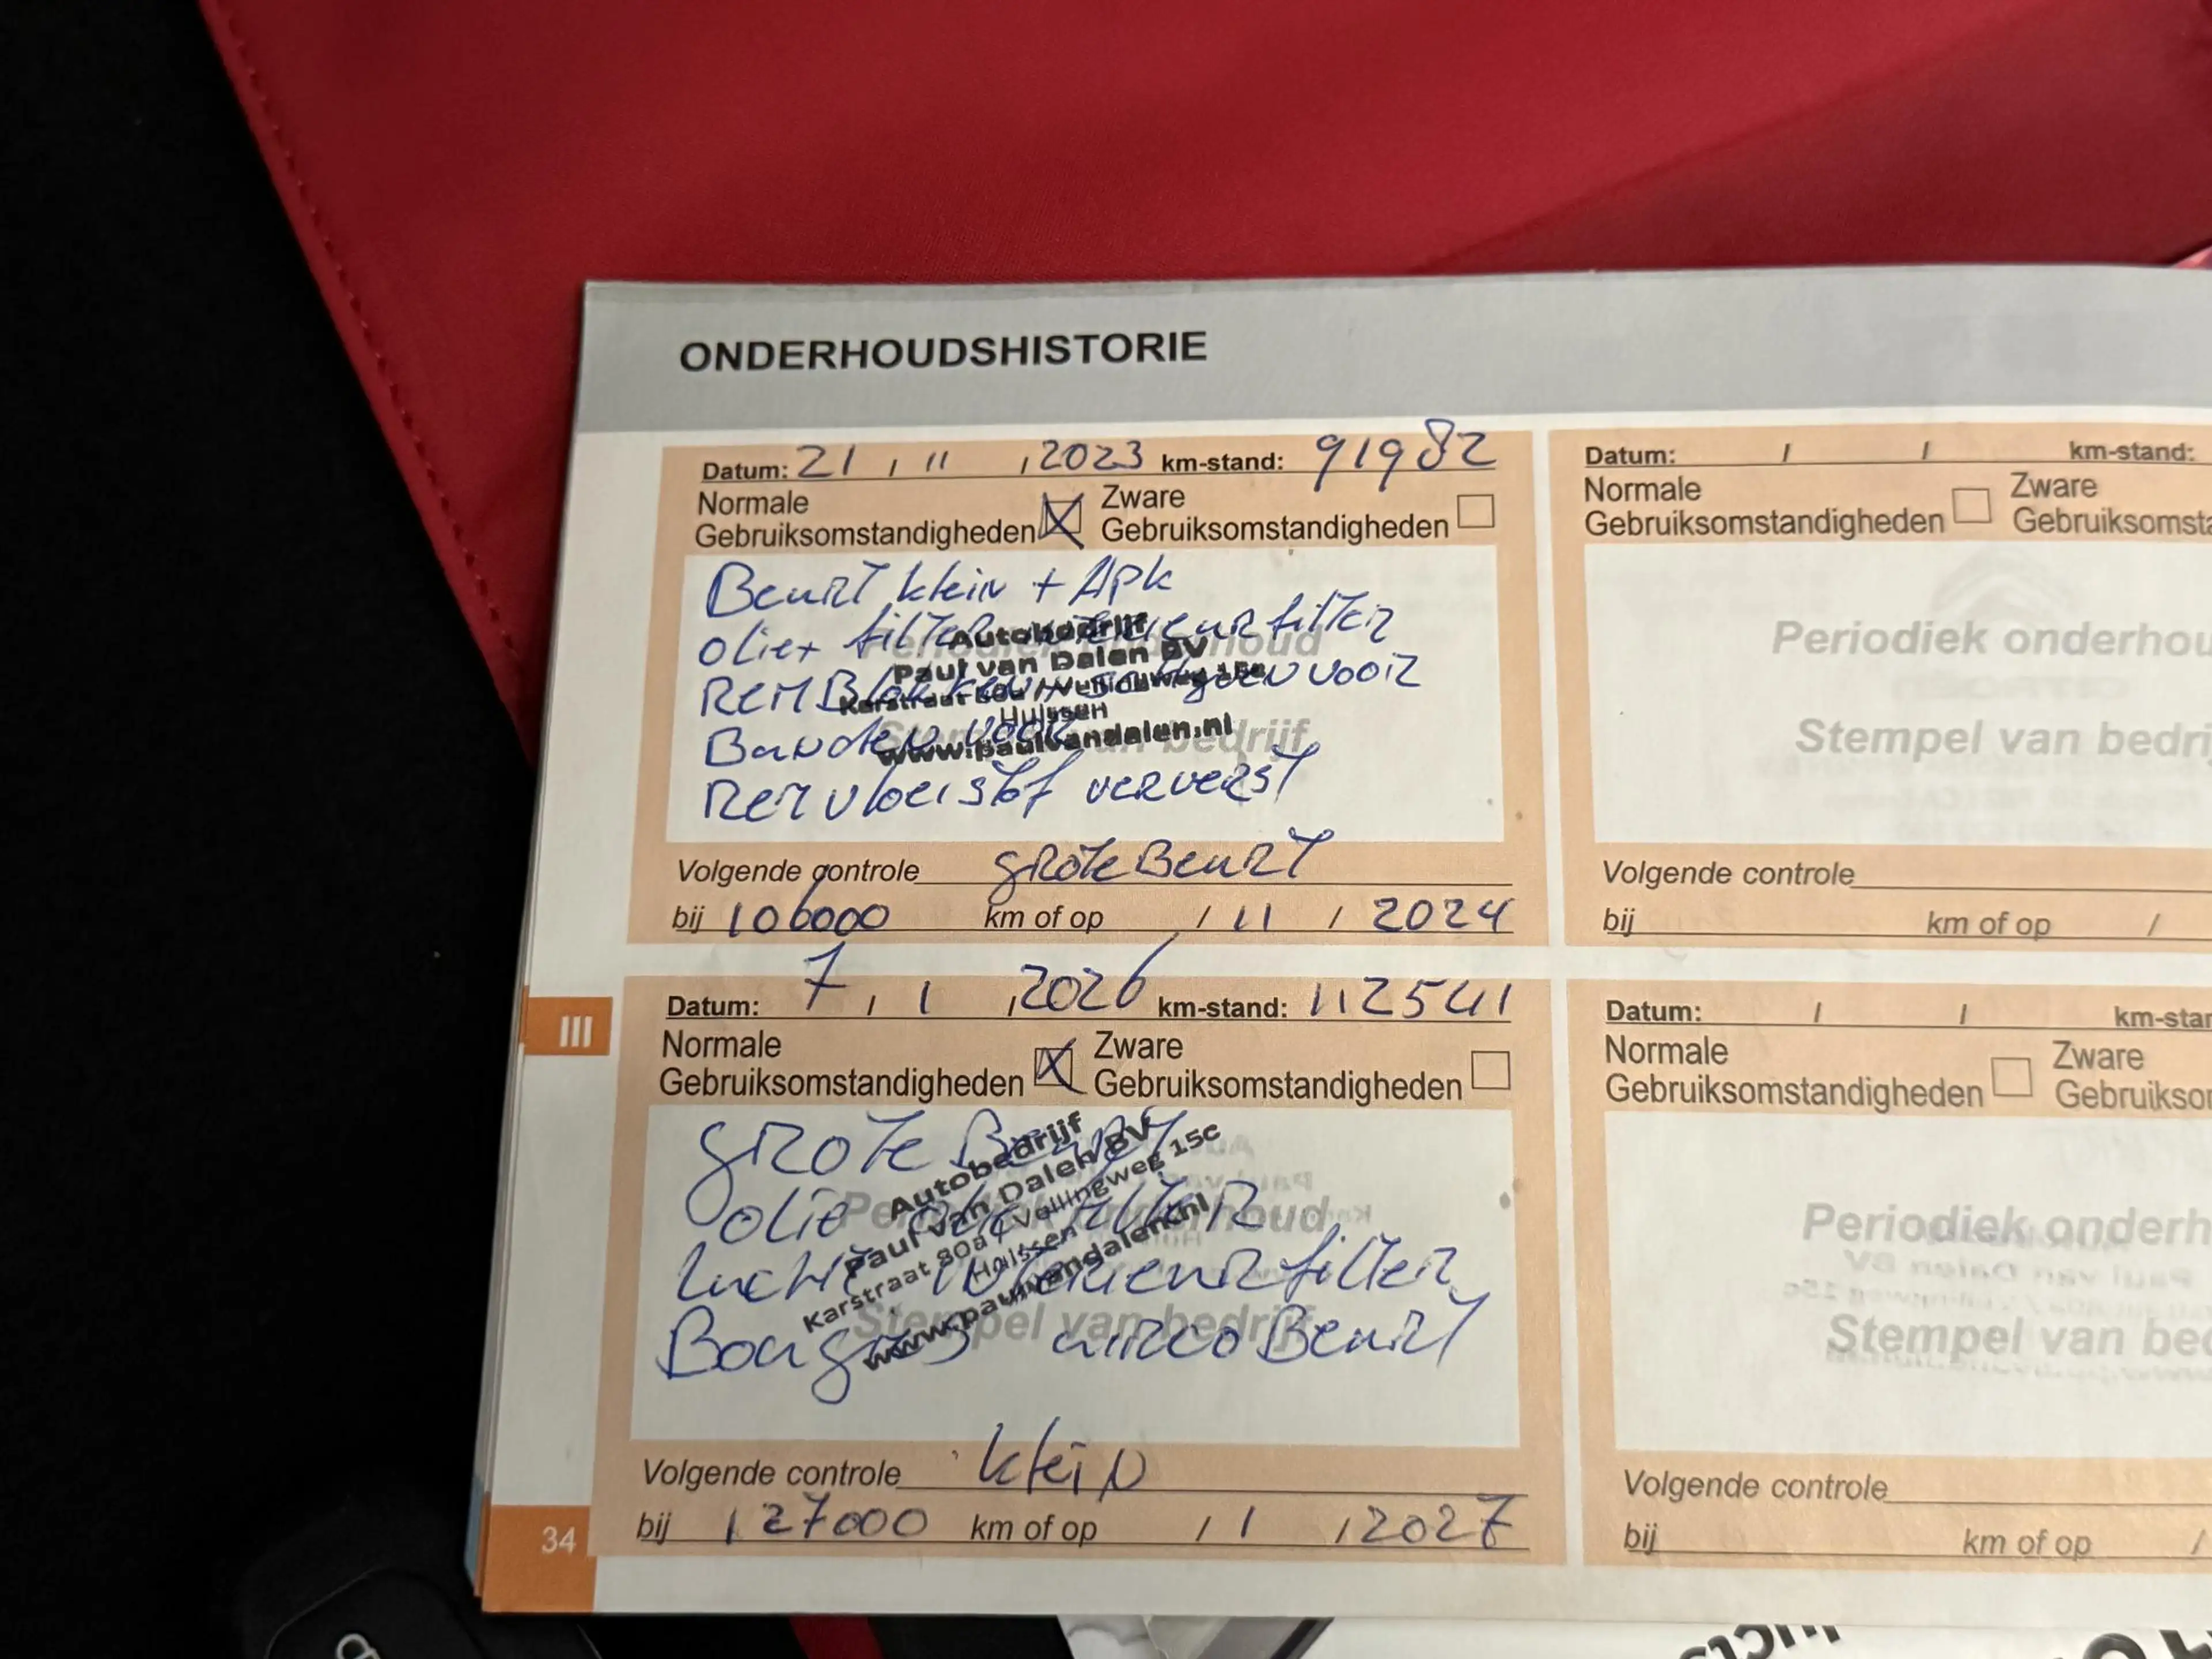 ONDERHOUDSHISTORIE
Datum: 21 / 11 / 2023 km-stand: 91982
Normale Gebruiksomstandigheden Zware Gebruiksomstandigheden
Beurt klein + Apk
olie+ filter interieurfilter
Remblokken + schijven voor
Banden voor
Remvloeistof ververst
Periodiek onderhoud
Stempel van bedrijf
Autobedrijf
Paul van Dalen BV
Karstraat 80a / Veilingweg 15c
Huissen
www.paulvandalen.nl
Volgende controle grote Beurt
bij 106000 km of op / 11 / 2024
Datum: 7 / 1 / 2026 km-stand: 112541
Normale Gebruiksomstandigheden Zware Gebruiksomstandigheden
grote Beurt
olie olie filter
Lucht interieurfilter
Bougies aircoBeurt
Periodiek onderhoud
Stempel van bedrijf
Autobedrijf
Paul van Dalen BV
Karstraat 80a / Veilingweg 15c
Huissen
www.paulvandalen.nl
Volgende controle klein
bij 127000 km of op / 1 / 2027
III
34
Datum: / / km-stand:
Normale Gebruiksomstandigheden Zware Gebruiksomsta
Periodiek onderhou
Stempel van bedri
Volgende controle
bij km of op /
Datum: / / km-star
Normale Gebruiksomstandigheden Zware Gebruiksor
Periodiek onderh
Stempel van bed
Volgende controle
bij km of op /